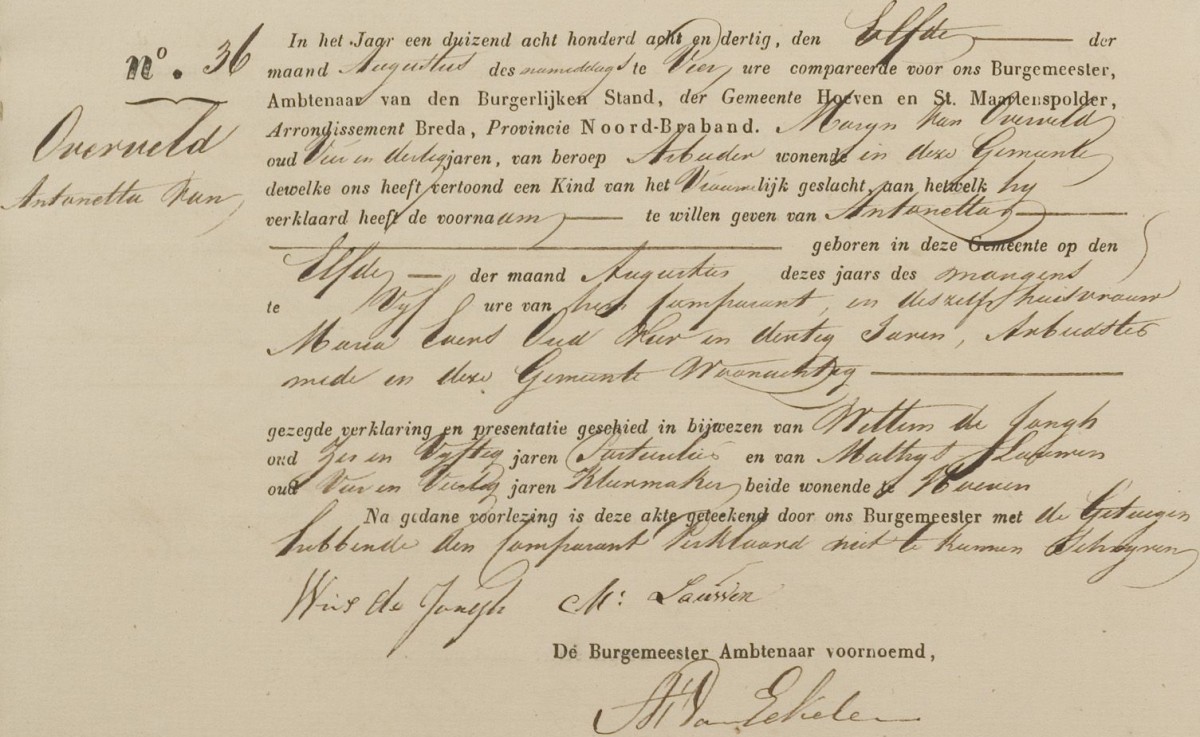 nº. 36
Overveld
Antonetta Van
In het Jaar een duizend acht honderd acht en dertig, den Elfde der
maand Augustus des namiddags te Vier ure compareerde voor ons Burgemeester,
Ambtenaar van den Burgerlijken Stand, der Gemeente Hoeven en St. Maartenspolder,
Arrondissement Breda, Provincie Noord-Braband. Maryn Van Overveld
oud Vier en dertig jaren, van beroep Arbeider wonende in deze Gemeente
dewelke ons heeft vertoond een Kind van het Vrouwelijk geslacht, aan hetwelk hy
verklaard heeft de voornaam te willen geven van Antonetta
geboren in deze Gemeente op den
Elfde der maand Augustus dezes jaars des morgens
te Vyf ure van hem Comparant, en deszelfs huisvrouw
Maria Evers Oud Vier en dertig Jaren, Arbeidster
mede in deze Gemeente Woonachtig
gezegde verklaring en presentatie geschied in bijwezen van Willem de Jongh
oud Zes en Vyftig jaren Particulier en van Mathys Lauwen
oud Vier en Veertig jaren Kleermaker beide wonende te Hoeven
Na gedane voorlezing is deze akte geteekend door ons Burgemeester met de Getuigen
hebbende den Comparant Verklaard niet te kunnen Schryven
de Jongh M:
De Burgemeester Ambtenaar voornoemd,